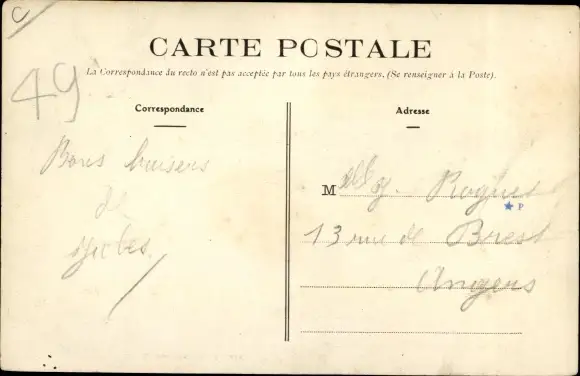 C
CARTE POSTALE
La Correspondance du recto n'est pas acceptée par tous les pays étrangers. (Se renseigner à la Poste).
49
Correspondance
Adresse
Bons baisers
de
M elle y.
★ P
13 rue de Brest
Angers